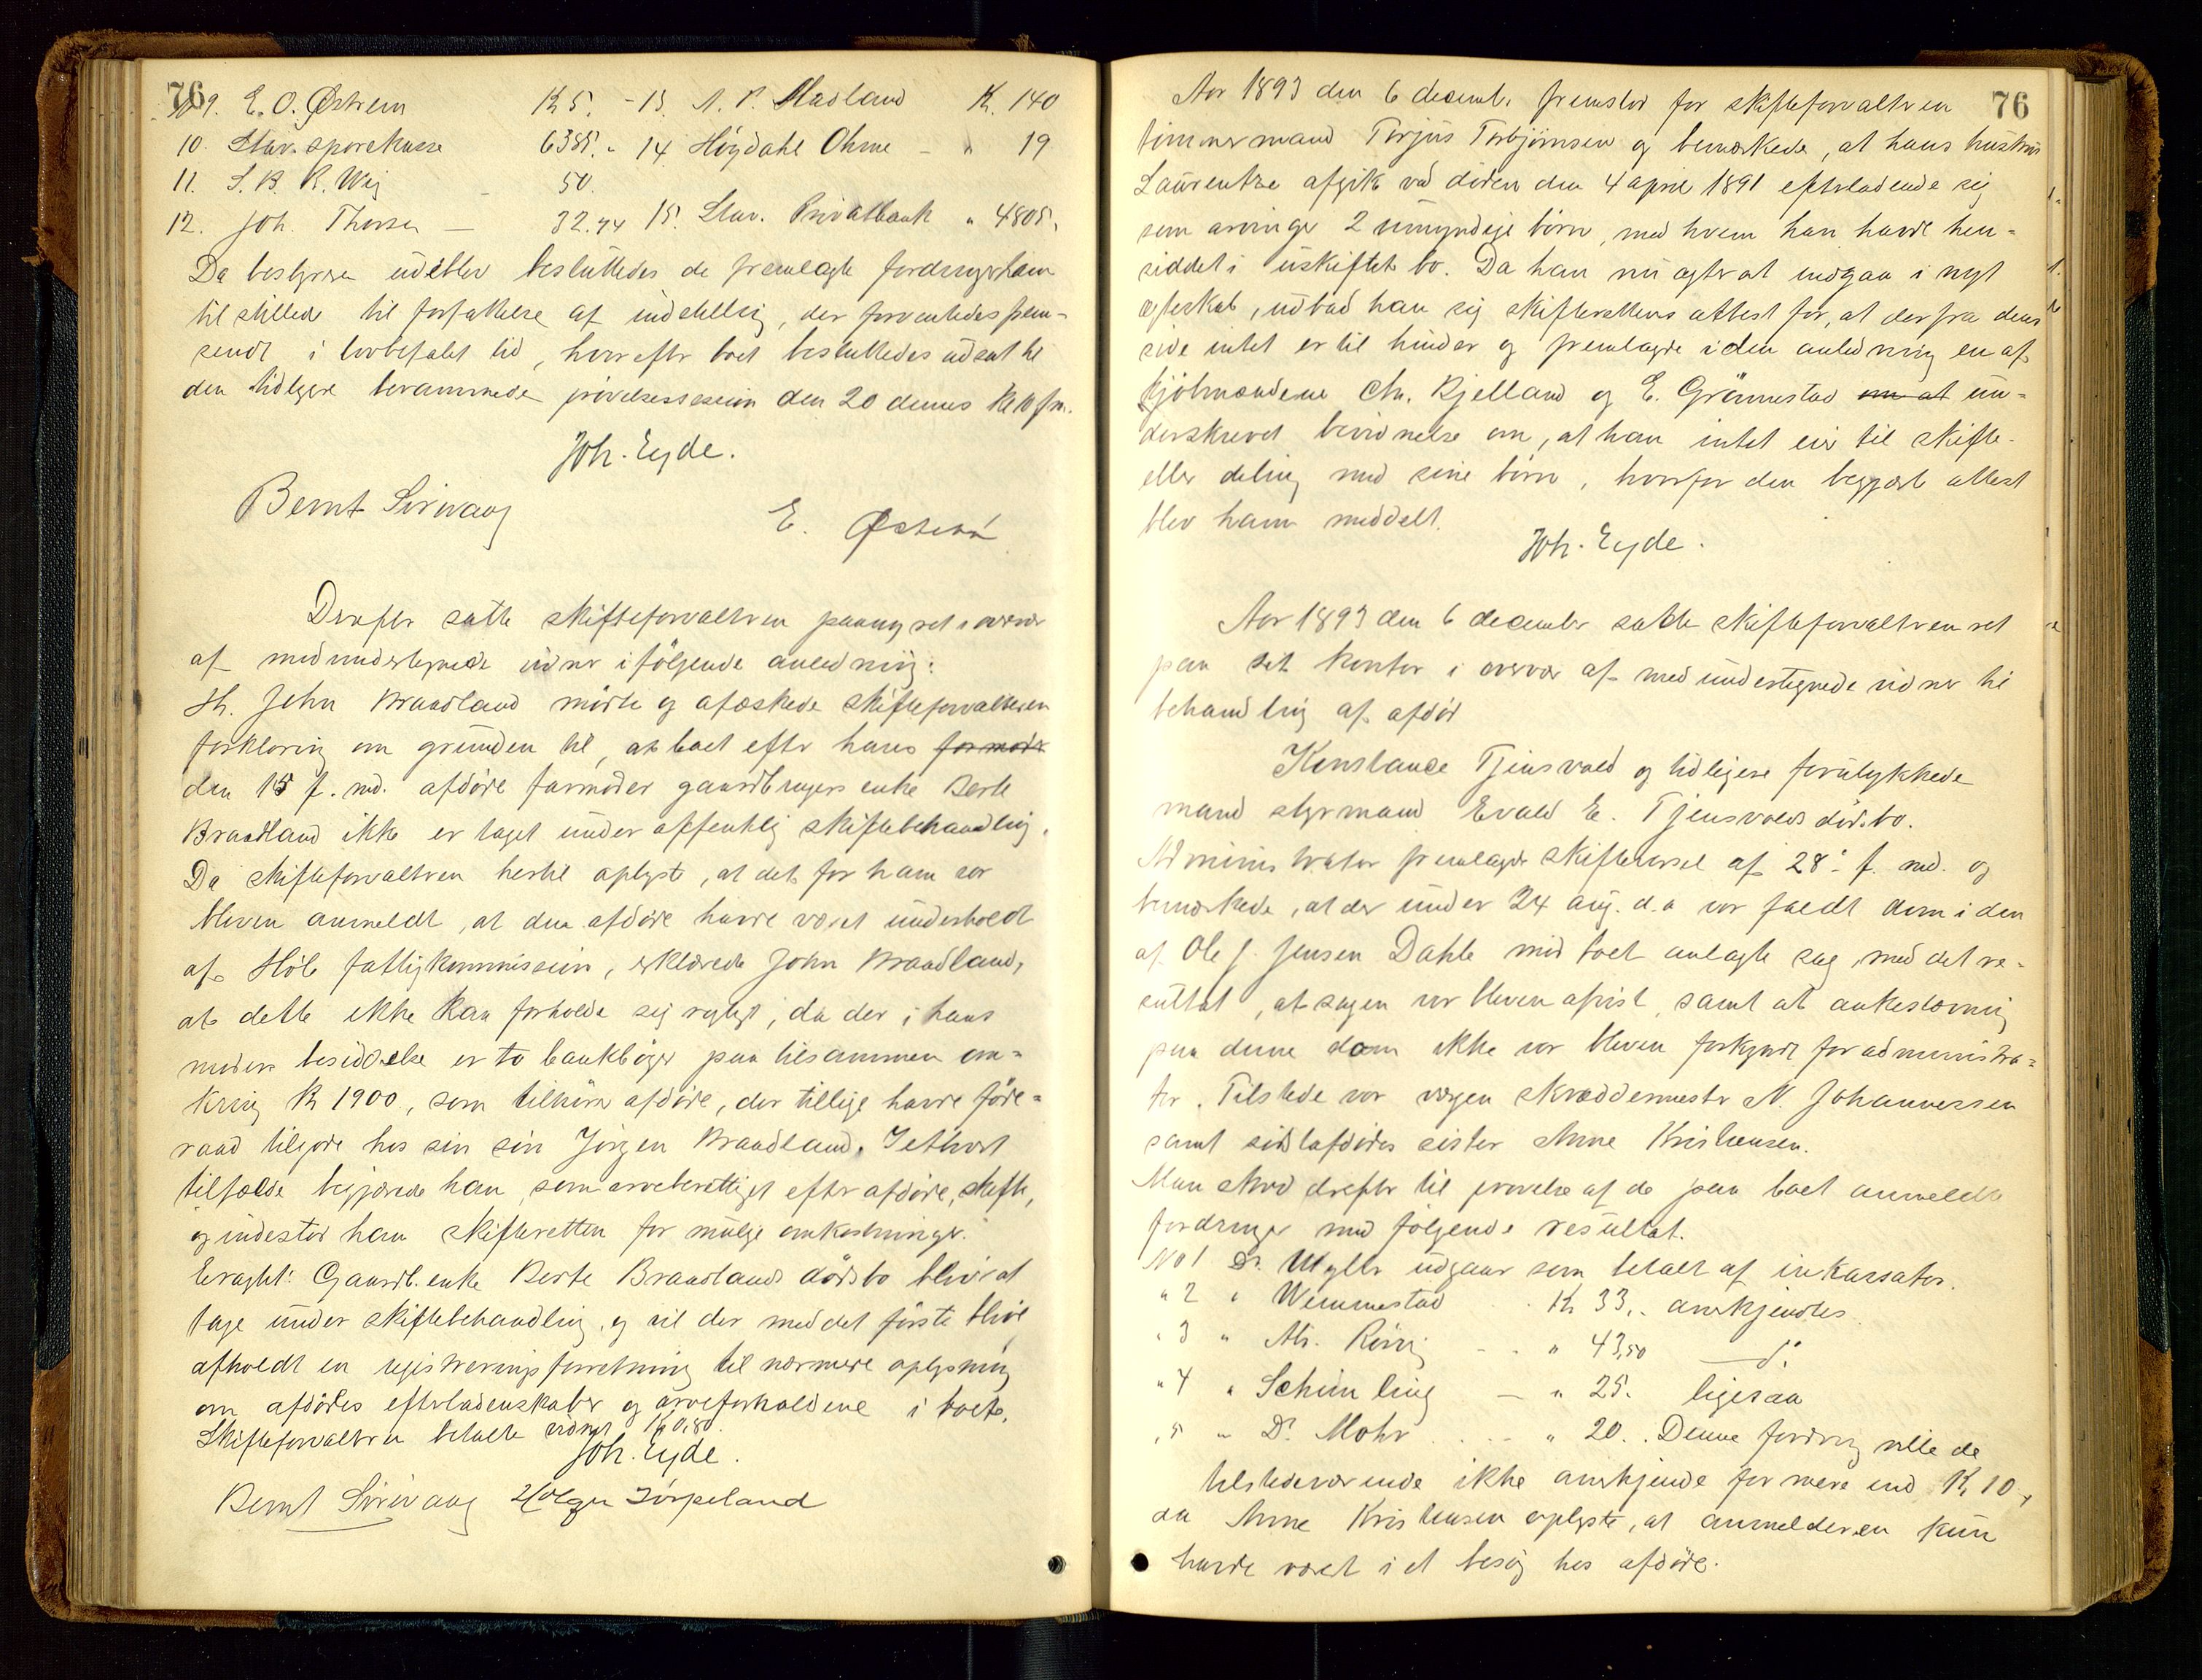 76
No 9. E. O. Østrem K 5. - 13. A. P. Madland K. 140
10. Stav. sparekasse 6385. - 14 Høydahl Ohme - " 19
11. S. B. R. Wig - 50.
12. Joh. Thorsen - 32.74 15. Stav. Privatbank " 4805.
Da bestyreren udeblev besluttedes de fremlagte fordringer ham
tilstillede til forfattelse af indstilling, der forventedes frem-
sendt i lovbefalet tid, hvorefter boet besluttedes udsat til
den tidligere berammede prøvelsessession den 20 dennes kl 10 fm.
Joh. Eyde.
Bernt Sirivaag E. Østebø
Derefter satte skifteforvalteren paany ret i overvær
af medundertegnede vidner i følgende anledning:
Hr. John Braadland mødte og afæskede skifteforvalteren
forklaring om grunden til, at boet efter hans formoder
den 15 f. md. afdøde farmoder gaardbrugers enke Berte
Braadland ikke er taget under offentlig skiftebehandling.
Da skifteforvalteren hertil oplyste, at det for ham var
bleven anmeldt, at den afdøde havde været underholdt
af Høle fattigkommission, erklærede John Braadland,
at dette ikke kan forholde sig rigtigt, da der i hans
moders besiddelse er to bankbøger paa tilsammen om-
kring K 1900, som tilhører afdøde, der tillige havde føde-
raad tilgode hos sin søn Jørgen Braadland. I ethvert
tilfælde begjærede han som arveberettiget efter afdøde, skifte,
og indestod han skifteretten for mulige omkostninger.
Eragtet: Gaardb. enke Berte Braadlands dødsbo bliver at
tage under skiftebehandling, og vil der med det første blive
afholdt en registreringsforretning til nærmere oplysning
om afdødes efterladenskaber og arveforholdene i boet.
Skifteforvalteren betalte vidnet K 0,80.
Joh. Eyde.
Bernt Sirivaag Holger Jørpeland
76
Aar 1893 den 6 decemb. fremstod for skifteforvalteren
tømmermand Torjus Torbjørnsen og bemærkede, at hans hustru
Laurentze afgik ved døden den 4 april 1891 efterladende sig
som arvinger 2 umyndige børn, med hvem han havde hen-
siddet i uskiftet bo. Da han nu agter at indgaa i nyt
ægteskab, udbad han sig skifterettens attest for, at der fra dens
side intet er til hinder og fremlagde i den anledning en af
kjøbmændene Chr. Kjelland og E. Grønnestad om at un-
derskrevet bevidnelse om, at han intet eier til skifte-
eller deling med sine børn, hvorfor den begjærte attest
blev ham meddelt.
Joh. Eyde.
Aar 1893 den 6 december satte skifteforvalteren ret
paa sit kontor i overvær af medundertegnede vidner til
behandling af afdød
Konstance Tjensvold og tidligere forulykkede
mand styrmand Evald E. Tjensvolds dødsbo.
Administrator fremlagde skiftevarsel af 28. f. md. og
bemærkede, at der under 24 aug. d. a var faldt dom i den
af Ole J. Jensen Dahle mod boet anlagte sag, med det re-
sultat, at sagen var bleven afvist, samt at ankestævning
paa denne dom ikke var bleven forkyndt for administra-
tor. Tilstede var værgen skræddermester N. Johannessen
samt sidstafdødes søster Anne Kristensen.
Man skred derefter til prøvelse af de paa boet anmeldte
fordringer med følgende resultat.
No 1 Dr. Wyller udgaar som betalt af inkassator.
" 2 " Wemmestad . . K 33,. anerkjendtes
" 3 " Alb. Rønig - . " 43,50 - do
" 4 " Schimling - " 25. ligesaa
" 5 " Dr. Mohr . . - " 20. . Denne fordring ville de
tilstedeværende ikke anerkjende for mere end K 10,
da Anne Kristensen oplyste, at anmelderen kun
havde været i et besøg hos afdøde.